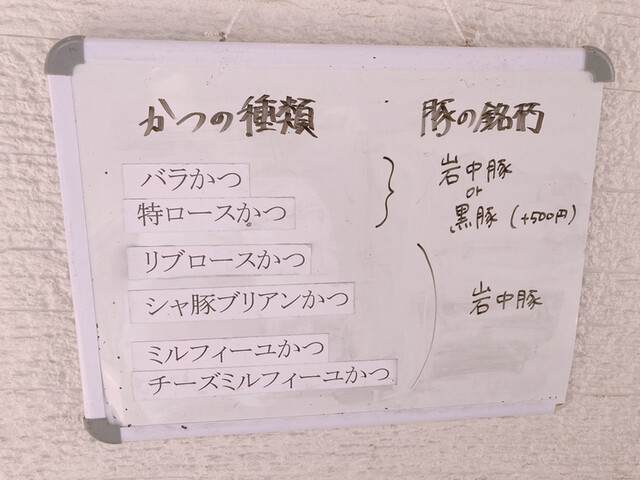 かつの種類
豚の銘柄
バラかつ
特ロースかつ
岩中豚
or
黒豚 (+500円)
リブロースかつ
シャ豚ブリアンかつ
ミルフィーユかつ
チーズミルフィーユかつ
岩中豚